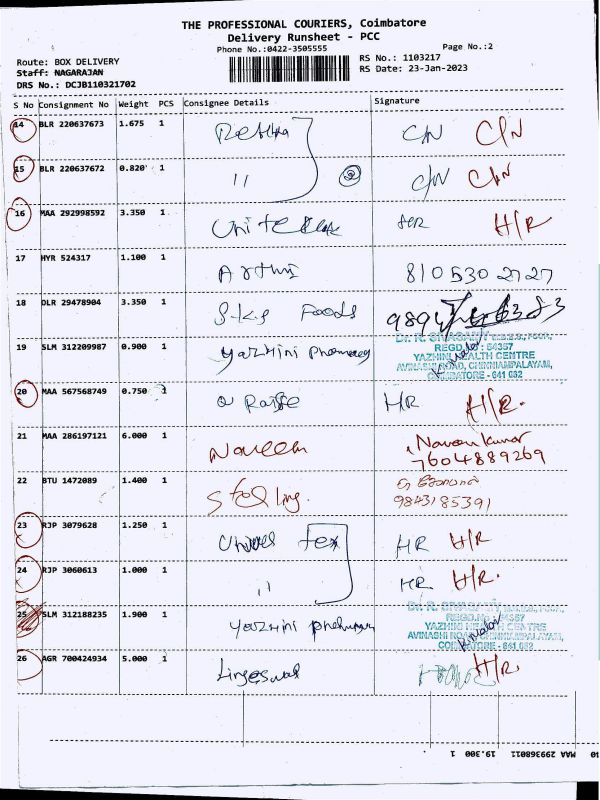 THE PROFESSIONAL COURIERS, Coimbatore
Delivery Runsheet - PCC
Phone No.:0422-3505555
Page No.:2
Route: BOX DELIVERY
RS No.: 1103217
Staff: NAGARAJAN
RS Date: 23-Jan-2023
DRS No.: DCJB110321702
S No Consignment No Weight PCS Consignee Details Signature
14 BLR 220637673 1.675 1 C/N C/N
15 BLR 220637672 0.820 1 11 C/N C/N
16 MAA 292998592 3.350 1 HR H/R
17 HYR 524317 1.100 1 Arthi 810530 2727
18 DLR 29478904 3.350 1 S.K.S Foods
19 SLM 312209987 0.900 1 Yazhini Pharmacy
YAZHINI HEALTH CENTRE
AVINASHI ROAD, CHINNIAMPALAYAM,
COIMBATORE - 641 062
20 MAA 567568749 0.750 1 HR H/R.
21 MAA 286197121 6.000 1 Naveen Naveen Kumar
7604889269
22 BTU 1472089 1.400 1
9843185391
23 RJP 3079628 1.250 1 tex HR H/R
24 RJP 3060613 1.000 1 11 HR H/R.
25 SLM 312188235 1.900 1 Yazhini
YAZHINI HEALTH CENTRE
AVINASHI ROAD, CHINNIAMPALAYAM,
COIMBATORE - 641 062
26 AGR 700424934 5.000 1 H/R
MAA 299368011 19.300 1